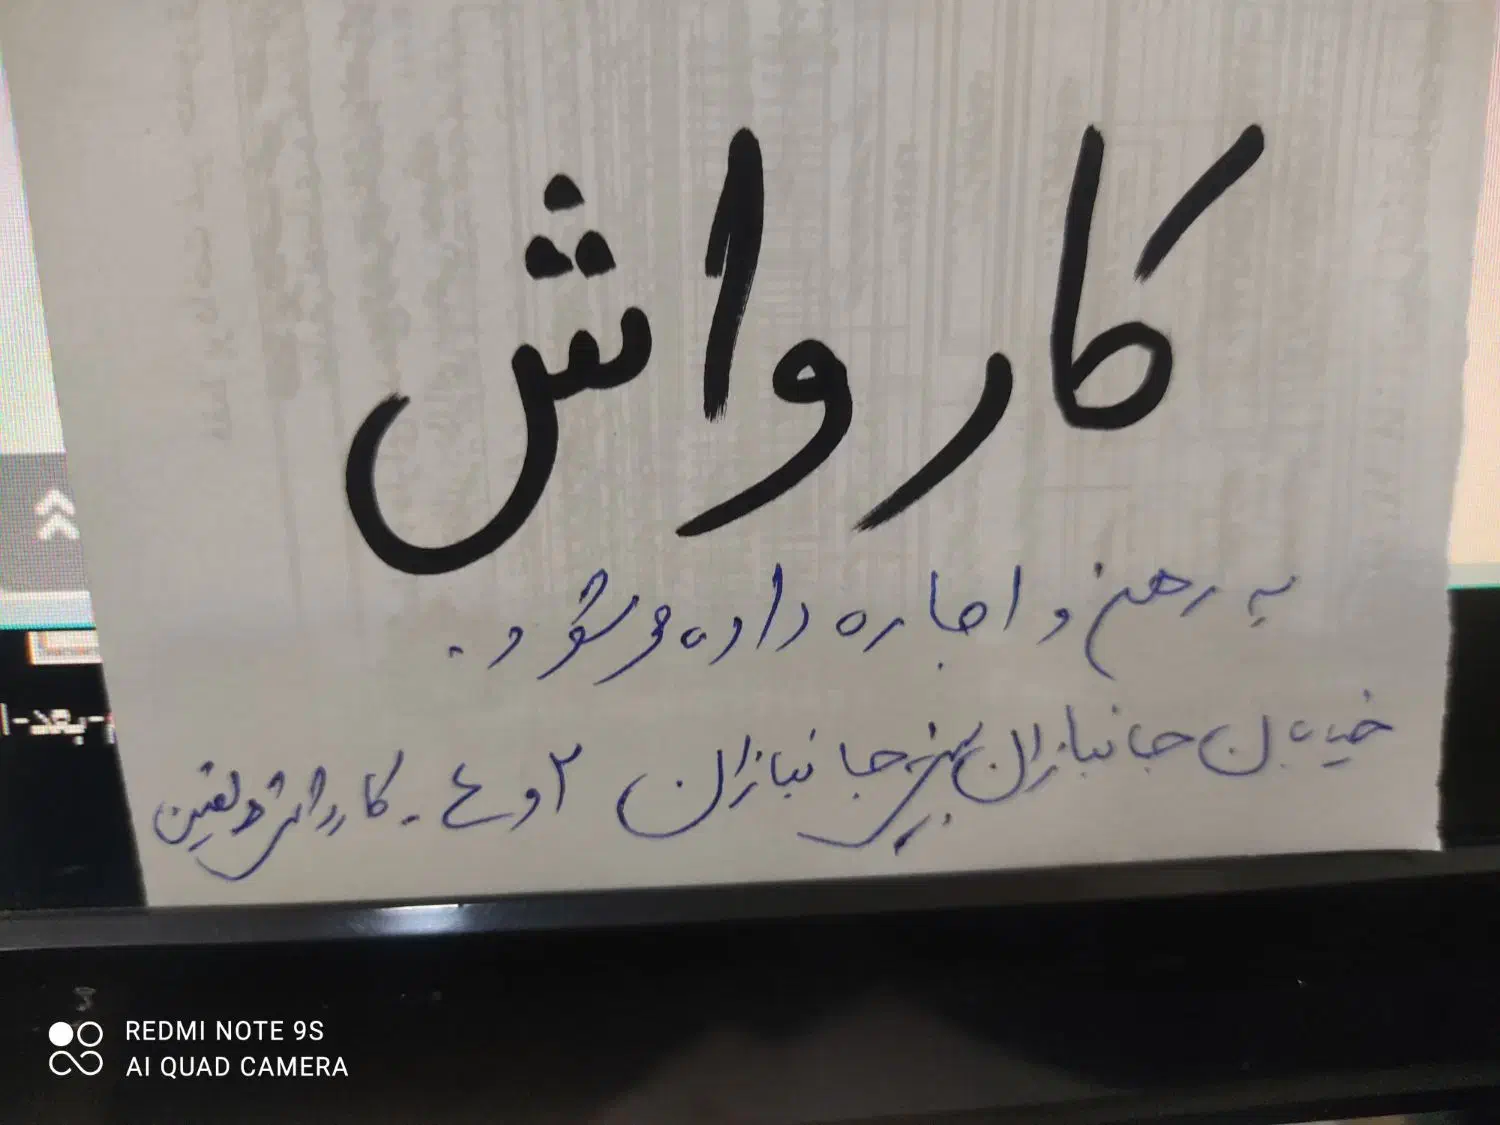 کارواش
به رهن و اجاره داده میشود.
خیابان جانبازان بین جانبازان ۲ و ۴ - کارواش
REDMI NOTE 9S
AI QUAD CAMERA